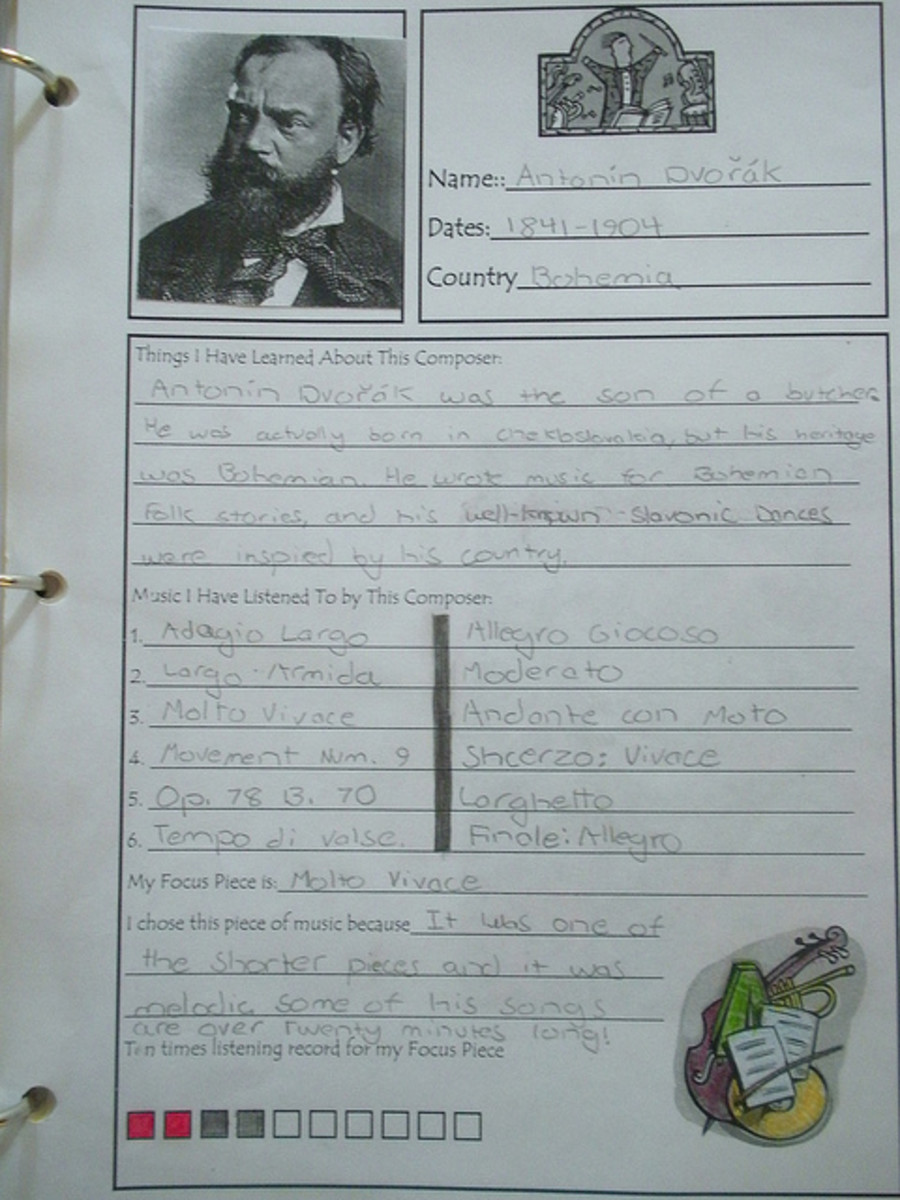 Name:: Antonín Dvořák
Dates: 1841-1904
Country Bohemia
Things I Have Learned About This Composer:
Antonín Dvořák was the son of a butcher.
He was actually born in Chekloslovakia, but his heritage
was Bohemian. He wrote music for Bohemian
folk stories, and his well-known Slavonic Dances
were inspied by his country.
Music I Have Listened To by This Composer:
1. Adagio Largo Allegro Giocoso
2. Largo-Armida Moderato
3. Molto Vivace Andante con Moto
4. Movement Num. 9 Shcerzo: Vivace
5. Op. 78 B. 70 Larghetto
6. Tempo di valse. Finale: Allegro
My Focus Piece is: Molto Vivace
I chose this piece of music because It was one of
the shorter pieces and it was
melodic. Some of his songs
are over twenty minutes long!
Ten times listening record for my Focus Piece